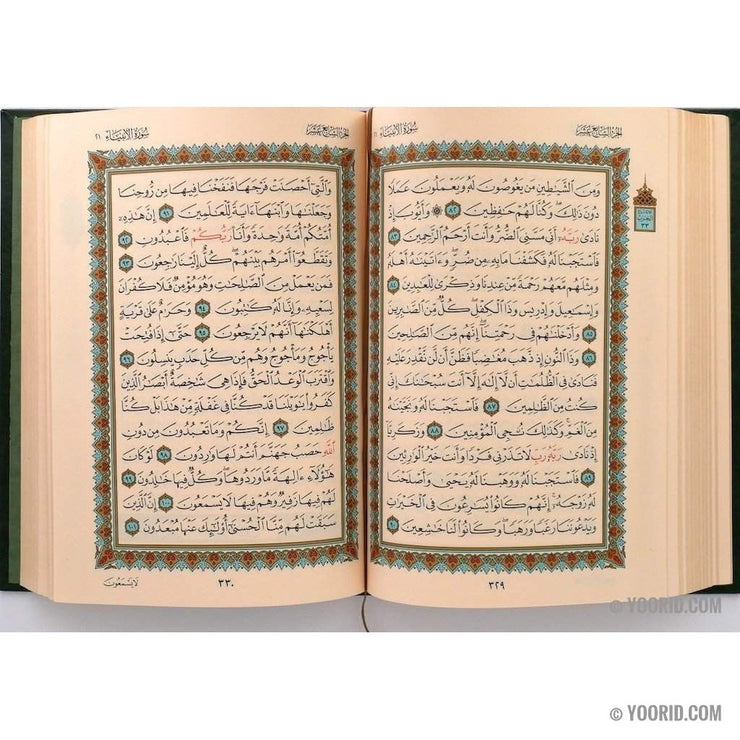 الجزء السابع عشر
سورة الأنبياء ٢١
وَمِنَ ٱلشَّيَٰطِينِ مَن يَغُوصُونَ لَهُۥ وَيَعْمَلُونَ عَمَلًا
دُونَ ذَٰلِكَۖ وَكُنَّا لَهُمْ حَٰفِظِينَ ٨٢ ۞ وَأَيُّوبَ إِذْ
نَادَىٰ رَبَّهُۥٓ أَنِّى مَسَّنِىَ ٱلضُّرُّ وَأَنتَ أَرْحَمُ ٱلرَّٰحِمِينَ ٨٣
فَٱسْتَجَبْنَا لَهُۥ فَكَشَفْنَا مَا بِهِۦ مِن ضُرٍّۖ وَءَاتَيْنَٰهُ أَهْلَهُۥ
وَمِثْلَهُم مَّعَهُمْ رَحْمَةً مِّنْ عِندِنَا وَذِكْرَىٰ لِلْعَٰبِدِينَ ٨٤
وَإِسْمَٰعِيلَ وَإِدْرِيسَ وَذَا ٱلْكِفْلِۖ كُلٌّ مِّنَ ٱلصَّٰبِرِينَ
٨٥ وَأَدْخَلْنَٰهُمْ فِى رَحْمَتِنَآۖ إِنَّهُم مِّنَ ٱلصَّٰلِحِينَ
٨٦ وَذَا ٱلنُّونِ إِذ ذَّهَبَ مُغَٰضِبًا فَظَنَّ أَن لَّن نَّقْدِرَ عَلَيْهِ
فَنَادَىٰ فِى ٱلظُّلُمَٰتِ أَن لَّآ إِلَٰهَ إِلَّآ أَنتَ سُبْحَٰنَكَ إِنِّى
كُنتُ مِنَ ٱلظَّٰلِمِينَ ٨٧ فَٱسْتَجَبْنَا لَهُۥ وَنَجَّيْنَٰهُ
مِنَ ٱلْغَمِّۚ وَكَذَٰلِكَ نُۨجِى ٱلْمُؤْمِنِينَ ٨٨ وَزَكَرِيَّآ
إِذْ نَادَىٰ رَبَّهُۥ رَبِّ لَا تَذَرْنِى فَرْدًا وَأَنتَ خَيْرُ ٱلْوَٰرِثِينَ
٨٩ فَٱسْتَجَبْنَا لَهُۥ وَوَهَبْنَا لَهُۥ يَحْيَىٰ وَأَصْلَحْنَا
لَهُۥ زَوْجَهُۥٓۚ إِنَّهُمْ كَانُوا۟ يُسَٰرِعُونَ فِى ٱلْخَيْرَٰتِ
وَيَدْعُونَنَا رَغَبًا وَرَهَبًاۖ وَكَانُوا۟ لَنَا خَٰشِعِينَ ٩٠
٣٢٩
٣٣
الجزء السابع عشر
سورة الأنبياء ٢١
وَٱلَّتِىٓ أَحْصَنَتْ فَرْجَهَا فَنَفَخْنَا فِيهَا مِن رُّوحِنَا
وَجَعَلْنَٰهَا وَٱبْنَهَآ ءَايَةً لِّلْعَٰلَمِينَ ٩١ إِنَّ هَٰذِهِۦٓ
أُمَّتُكُمْ أُمَّةً وَٰحِدَةً وَأَنَا۠ رَبُّكُمْ فَٱعْبُدُونِ ٩٢
وَتَقَطَّعُوٓا۟ أَمْرَهُم بَيْنَهُمْۖ كُلٌّ إِلَيْنَا رَٰجِعُونَ ٩٣
فَمَن يَعْمَلْ مِنَ ٱلصَّٰلِحَٰتِ وَهُوَ مُؤْمِنٌ فَلَا كُفْرَانَ
لِسَعْيِهِۦ وَإِنَّا لَهُۥ كَٰتِبُونَ ٩٤ وَحَرَٰمٌ عَلَىٰ قَرْيَةٍ
أَهْلَكْنَٰهَآ أَنَّهُمْ لَا يَرْجِعُونَ ٩٥ حَتَّىٰٓ إِذَا فُتِحَتْ
يَأْجُوجُ وَمَأْجُوجُ وَهُم مِّن كُلِّ حَدَبٍ يَنسِلُونَ ٩٦
وَٱقْتَرَبَ ٱلْوَعْدُ ٱلْحَقُّ فَإِذَا هِىَ شَٰخِصَةٌ أَبْصَٰرُ ٱلَّذِينَ
كَفَرُوا۟ يَٰوَيْلَنَا قَدْ كُنَّا فِى غَفْلَةٍ مِّنْ هَٰذَا بَلْ كُنَّا
ظَٰلِمِينَ ٩٧ إِنَّكُمْ وَمَا تَعْبُدُونَ مِن دُونِ
ٱللَّهِ حَصَبُ جَهَنَّمَ أَنتُمْ لَهَا وَٰرِدُونَ ٩٨ لَوْ كَانَ
هَٰٓؤُلَآءِ ءَالِهَةً مَّا وَرَدُوهَاۖ وَكُلٌّ فِيهَا خَٰلِدُونَ ٩٩
لَهُمْ فِيهَا زَفِيرٌ وَهُمْ فِيهَا لَا يَسْمَعُونَ ١٠٠ إِنَّ ٱلَّذِينَ
سَبَقَتْ لَهُم مِّنَّا ٱلْحُسْنَىٰٓ أُو۟لَٰٓئِكَ عَنْهَا مُبْعَدُونَ ١٠١
٣٣٠
لَا يَسْمَعُونَ
© YOORID.COM
© YOORID.COM